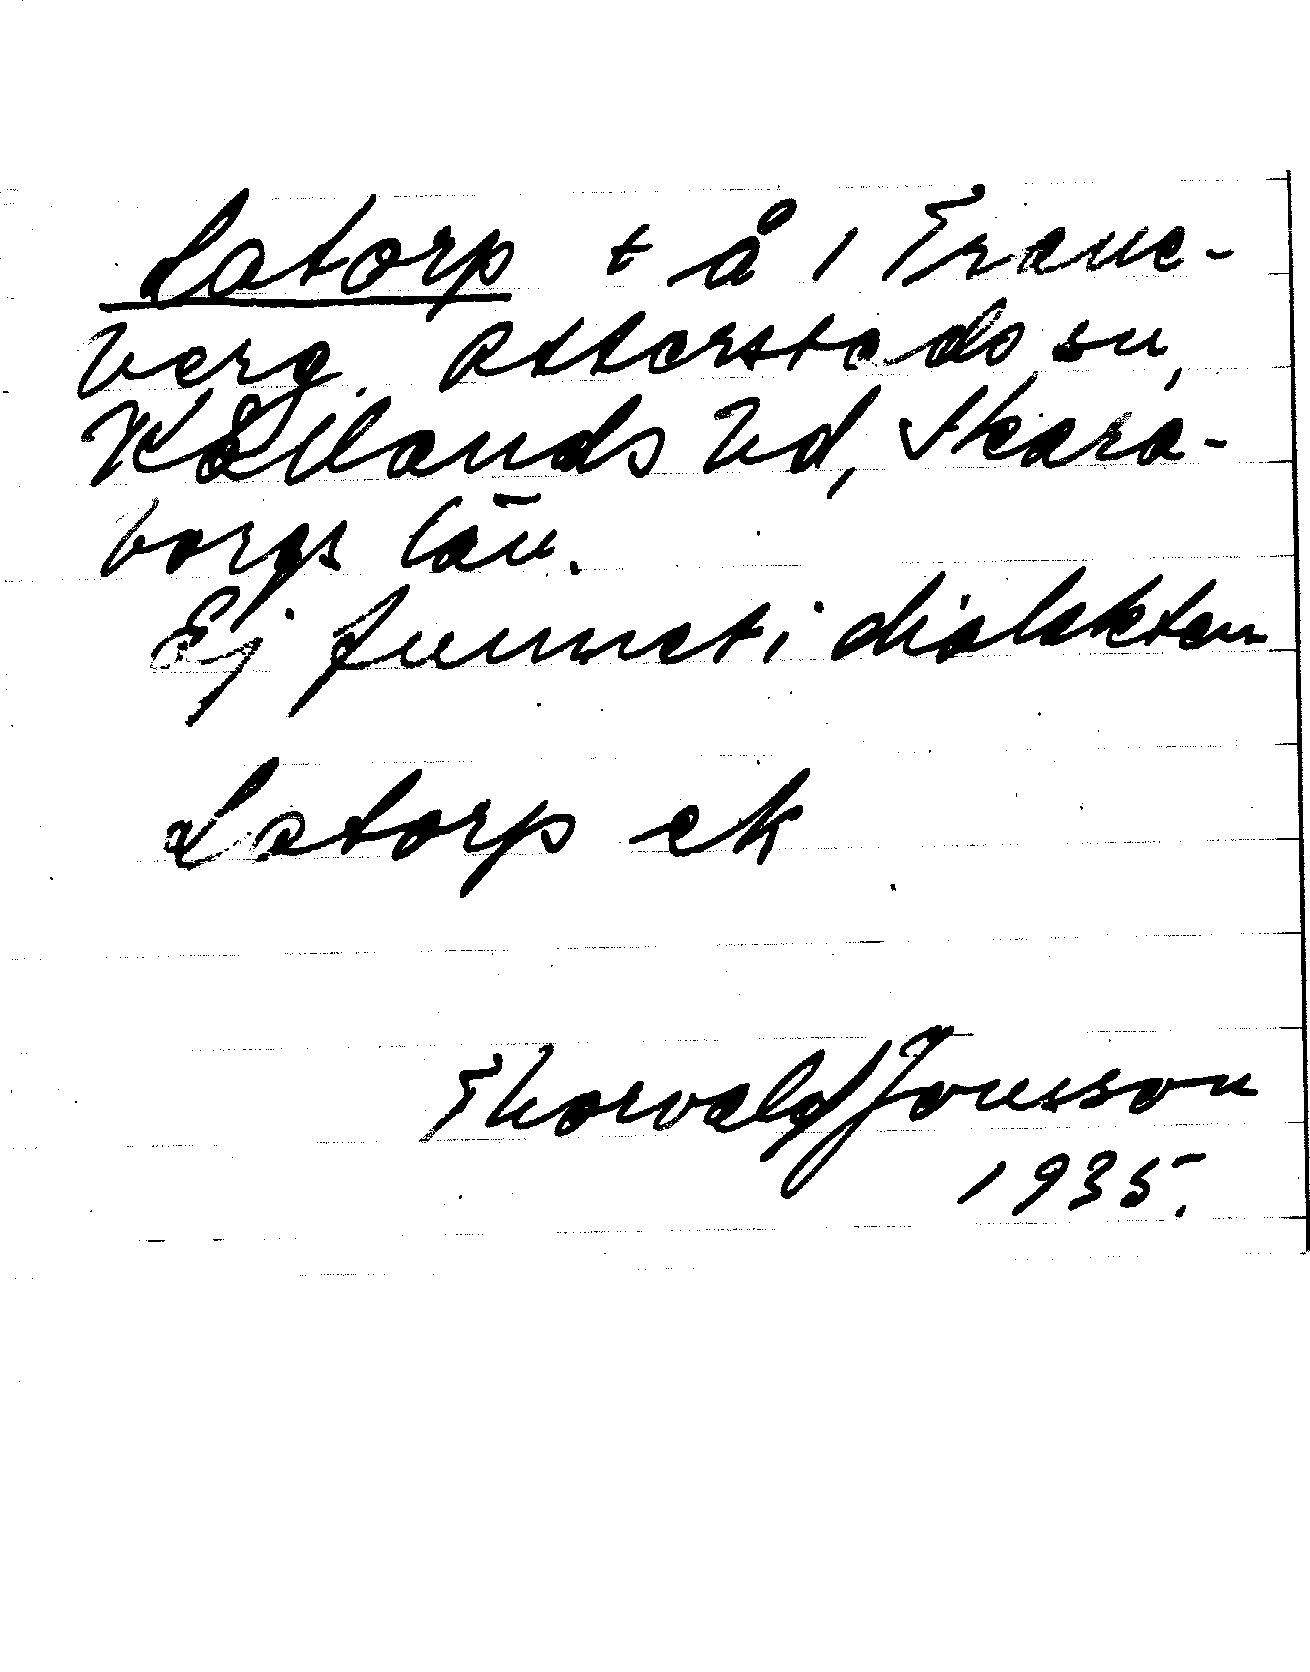 Latorp t å 1 Trane-
berg. Otterstads sn,
Kållands hd, Skara-
borgs län.
Ej funnet i dialekten
Latorp ek
Thorvald Jonsson
1935.